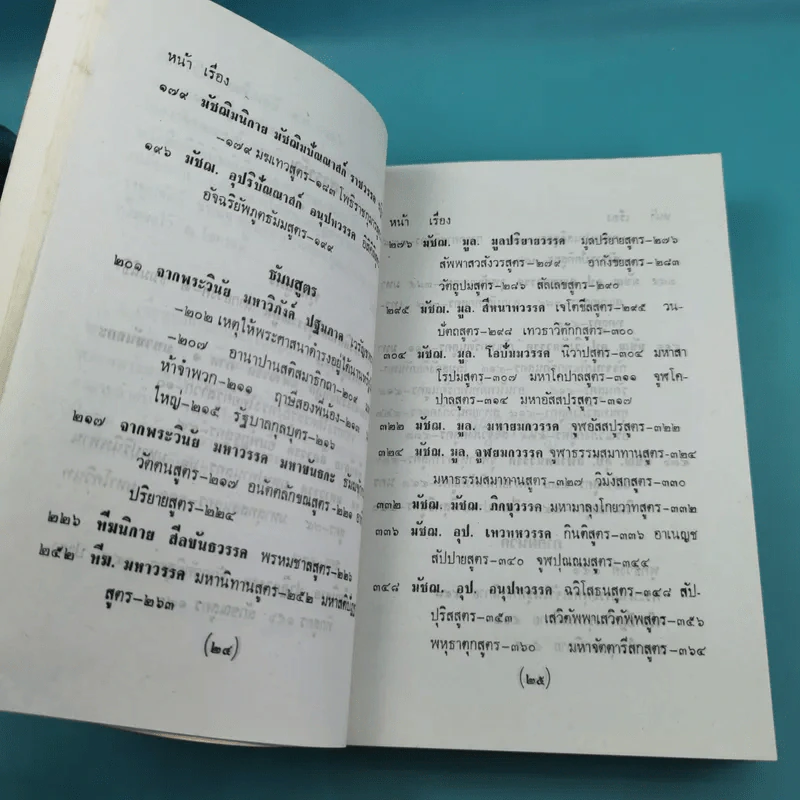 หน้า เรื่อง
๑๗๙ มัชฌิมนิกาย มัชฌิมปัณณาสก์ ราชวรรค
–๑๗๙ มฆเทวสูตร–๑๘๓ โพธิราชกุมารสูตร
๑๙๖ มัชฌ. อุปริปัณณาสก์ อนุปทวรรค
อัจฉริยัพภูตธัมมสูตร–๑๙๙
ธัมมสูตร
๒๐๑ จากพระวินัย มหาวิภังค์ ปฐมภาค
–๒๐๒ เหตุให้พระศาสนาดำรงอยู่ได้นาน
–๒๐๗ อานาปานสติสมาธิกถา–๒๐๙
ห้าจำพวก–๒๑๑ ฤาษีสองพี่น้อง–๒๑๓
ใหญ่–๒๑๕ รัฐบาลกุลบุตร–๒๑๖
๒๑๗ จากพระวินัย มหาวรรค มหาขันธกะ
วัตตนสูตร–๒๑๗ อนัตตลักขณสูตร–๒๒๑
ปริยายสูตร–๒๒๔
๒๒๖ ทีฆนิกาย สีลขันธวรรค พรหมชาลสูตร–๒๒๖
๒๕๒ ทีฆ. มหาวรรค มหานิทานสูตร–๒๕๒
สูตร–๒๖๓
(๒๔)
หน้า เรื่อง
๒๗๖ มัชฌ. มูล. มูลปริยายวรรค มูลปริยายสูตร–๒๗๖
สัพพาสวสังวรสูตร–๒๗๙ อากังขยสูตร–๒๘๓
วัตถูปมสูตร–๒๘๖ สัลเลขสูตร–๒๙๐
๒๙๕ มัชฌ. มูล. สีหนาทวรรค เจโตขีลสูตร–๒๙๕ วน-
ปัตถสูตร–๒๙๘ เทวธาวิตักกสูตร–๓๐๐
๓๐๔ มัชฌ. มูล. โอปัมมวรรค นิวาปสูตร–๓๐๔ มหาสา
โรปมสูตร–๓๐๗ มหาโคปาลสูตร–๓๑๑ จูฬโค-
ปาลสูตร–๓๑๔ มหาอัสสปุรสูตร–๓๑๗
๓๒๒ มัชฌ. มูล. มหายมกวรรค จูฬอัสสปุรสูตร–๓๒๒
๓๒๔ มัชฌ. มูล. จูฬยมกวรรค จูฬาธรรมสมาทานสูตร–๓๒๔
มหาธรรมสมาทานสูตร–๓๒๗ วิมังสกสูตร–๓๓๐
๓๓๒ มัชฌ. มัชฌ. ภิกขุวรรค มหามาลุงโกยวาทสูตร–๓๓๒
๓๓๖ มัชฌ. อุป. เทวทหวรรค กินติสูตร–๓๓๖ อาเนญช
สัปปายสูตร–๓๔๐ จูฬปุณณมสูตร–๓๔๔
๓๔๘ มัชฌ. อุป. อนุปทวรรค ฉวิโสธนสูตร–๓๔๘ สัป-
ปุริสสูตร–๓๕๓ เสวิตัพพาเสวิตัพพสูตร–๓๕๖
พหุธาตุกสูตร–๓๖๐ มหาจัตตารีสกสูตร–๓๖๔
(๒๕)